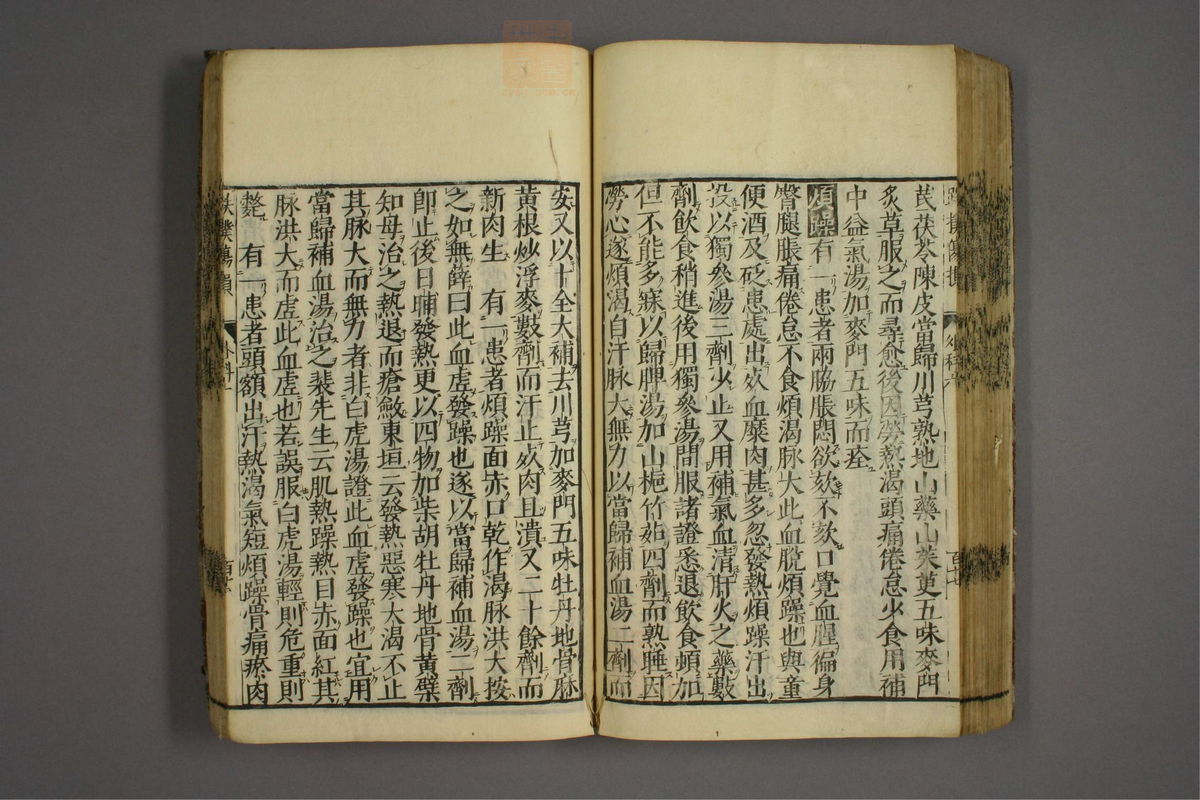 芪茯苓陳皮當歸川芎熟地山藥山茱萸五味麥門
炙草服之而尋愈後因勞熱渴頭痛倦怠少食用補
中益氣湯加麥門五味而痊
煩躁有一患者兩脇脹悶欲欬不欬口覺血腥徧身
臀腿脹痛倦怠不食煩渴脉大此血脫煩躁也與童
便酒及砭患處出歺血糜肉甚多忽發熱煩躁汗出
投以獨參湯三劑少止又用補氣血清肝火之藥數
劑飲食稍進後用獨參湯間服諸證悉退飲食頓加
但不能多寐以歸脾湯加山梔竹茹四劑而熟睡因
勞心遂煩渴自汗脉大無力以當歸補血湯二劑而
安又以十全大補去川芎加麥門五味牡丹地骨麻
黃根炒浮麥數劑而汗止歺肉且潰又二十餘劑而
新肉生 有一患者煩躁面赤口乾作渴脉洪大按
之如無薛曰此血虛發躁也遂以當歸補血湯二劑
卽止後日晡發熱更以四物加柴胡牡丹地骨黃檗
知母治之熱退而瘡斂東垣云發熱惡寒大渴不止
其脉大而無力者非白虎湯證此血虛發躁也宜用
當歸補血湯治之裴先生云肌熱躁熱目赤面紅其
脉洪大而虛此血虛也若誤服白虎湯輕則危重則
斃 有一患者頭額出汗熱渴氣短煩躁骨痛瘀肉